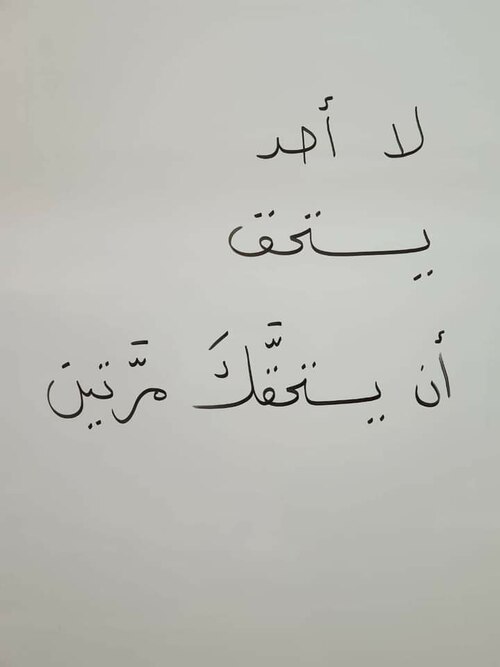 لا أحد
يستحق
أن يستحقَّكَ مرَّتين